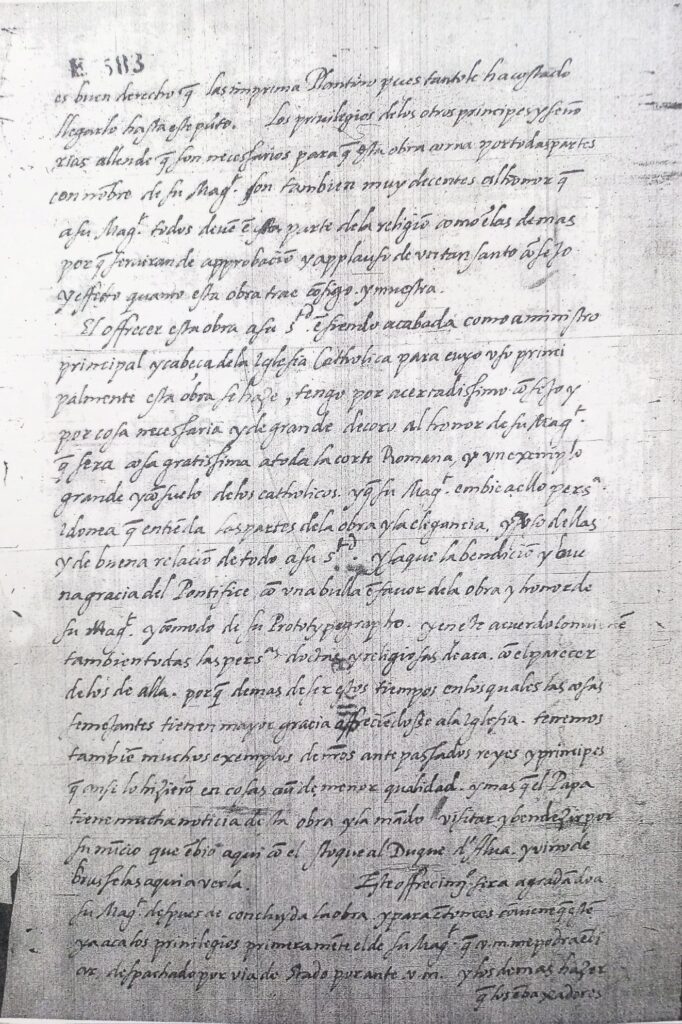 E 583
es buen derecho q̃ las imprima Plantino pues tanto le ha costado
llegarlo hasta este pũto. Los privilegios de los otros principes y seño
rias allende q̃ son necessarios para q̃ esta obra corra por todas partes
con nõbre de su Mag.ᵗ son tambien muy decentes al honor q̃
a su Mag.ᵗ todos deuẽ ẽ esta parte de la religiõ como ẽ las demas
por q̃ seruiran de approbaciõ y applauso de un tan santo cõsejo
y effetto quanto esta obra trae cõsigo y muestra.
El offrecer esta obra a su S.ᵈ ẽ siendo acabada como a ministro
principal y cabeça de la Iglesia Catholica para cuyo uso princi
palmente esta obra se haze, tengo por acertadissimo cõsejo y
por cosa necessaria y de grande decoro al honor de su Mag.ᵗ
q̃ sera cosa gratissima a toda la corte Romana, y un exemplo
grande y cõsuelo de los catholicos. y q̃ su Mag.ᵗ embie a ello pers.ᵃ
idonea q̃ entiẽda las partes de la obra y la elegancia, y uso dellas
y de buena relaciõ de todo a su S.ᵈ y saque la bendiciõ y bue
na gracia del Pontifice, cõ una bulla ẽ fauor de la obra y honor de
su Mag.ᵗ y cõmodo de su Prototypographo. y en este acuerdo
tambien todas las pers.ᵃˢ doctas y religiosas de aca. cõ el parecer
de los de alla. porq̃ demas de ser estos tiempos en los quales las cosas
semejantes tienen mayor gracia offreciẽdosse a la Iglesia. tenemos
tambiẽ muchos exemplos de nr̃os antepassados reyes y principes
q̃ ansi lo hizierõ en cosas aũ de menor qualidad. y mas q̃ el Papa
tiene mucha noticia desta obra y la mãdo visitar y bendezir por
su nũcio que ẽbio aqui cõ el stoque al Duque d'Alua. y vino de
brusselas aqui a verla. Este offrecim.ᵗᵒ sera agradãdo a
su Mag.ᵗ despues de concluyda la obra. y para entonces cõviene q̃ estẽ
ya aca los priuilegios primeramẽte el de su Mag.ᵗ q̃ v.m. me podra ẽbi
ar, despachado por via de Stado por ante v.m. y los demas hazer
q̃ los ẽbaxadores